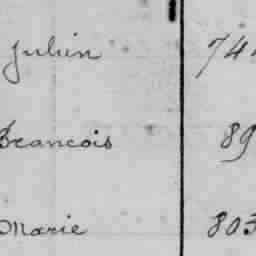 Julien 744
Francois 89
Marie 803